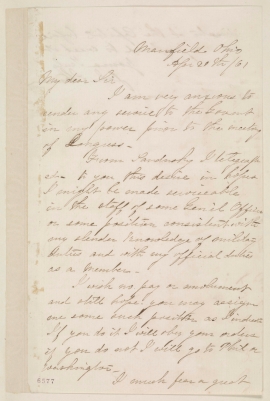 Mansfield Ohio
Apr 20th/61
My dear Sir
I am very anxious to
render any service to the Govmt
in my power prior to the meeting
of Congress—
From Sandusky I telegraph
ed to you this desire in
I might be made serviceable
in the staff of some Genl Officer
or some position consistent with
my slender knowledge of military
duties and with my official duties
as a member—
I wish no pay or emolument
and still hope you may assign
me some such position as I indicate
If you do it I will obey your orders
if you do not I will go to Phila or
Washington—
I much fear a great
8977